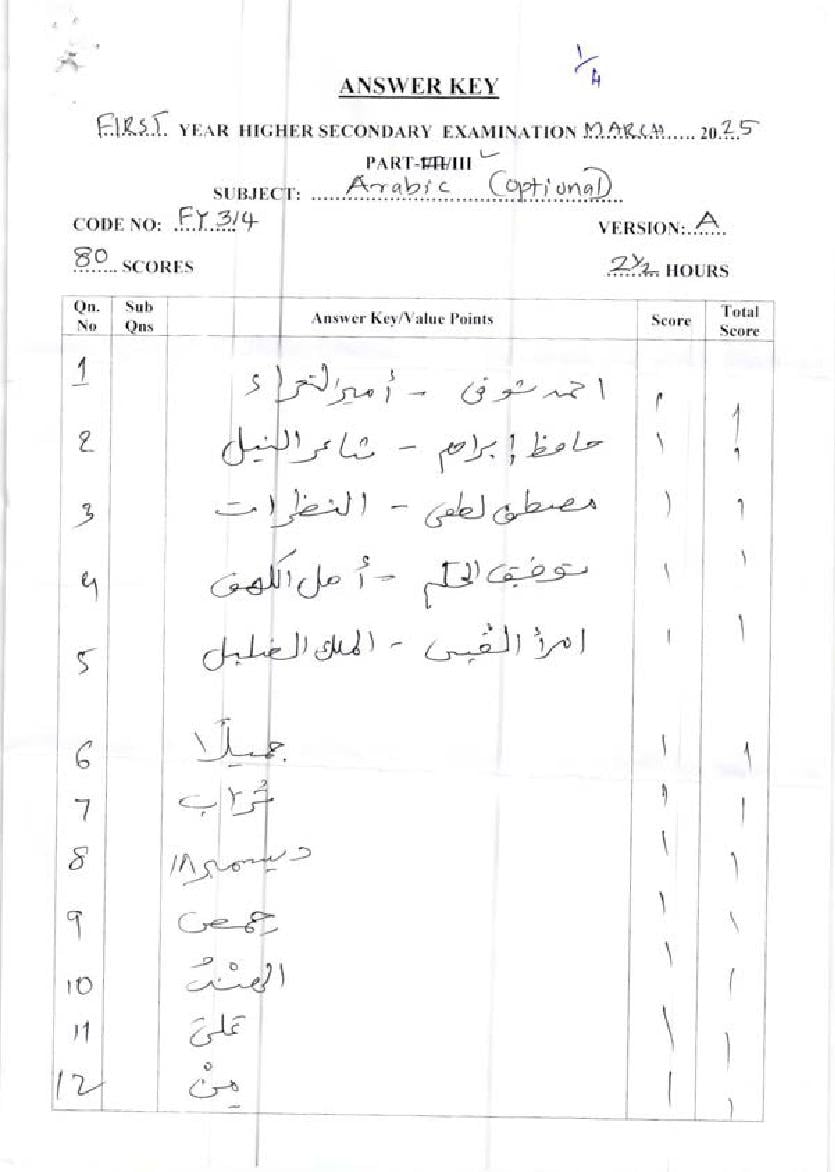 1/4
ANSWER KEY
FIRST YEAR HIGHER SECONDARY EXAMINATION MARCH 2025
PART-I/II/III
SUBJECT: Arabic (optional)
CODE NO: FY 314 VERSION: A
80 SCORES 2½ HOURS
Qn. No Sub Qns Answer Key/Value Points Score Total Score
1 احمد شوقى - أمير الشعراء ١ ١
2 حافظ إبراهيم - شاعر النيل ١ ١
3 مصطفى لطفى - النظرات ١ ١
4 توفيق الحكيم - أهل الكهف ١ ١
5 امرأ القيس - الملك الضليل ١ ١
6 جميلًا ١ ١
7 تُرَاب ١ ١
8 ديسمبر ١٨ ١ ١
9 حمص ١ ١
10 الهِنْدُ ١ ١
11 عَلىَ ١ ١
12 مِنْ ١ ١